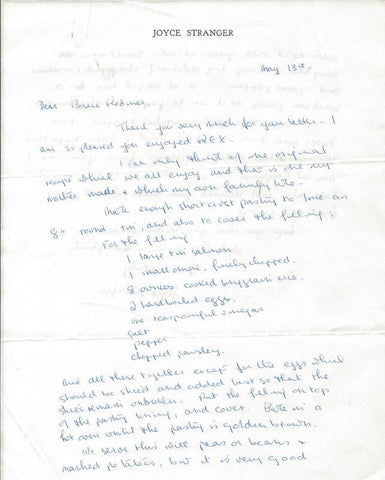 JOYCE STRANGER
May 13th.
Dear
Thank you very much for your letter - I
am so pleased you enjoyed REX.
I can only think of one original
recipe which we all enjoy, and that is one my
mother made & which my own family like.
Make enough shortcrust pastry to line an
8" round tin, and also to cover the filling:
For the filling
1 large tin salmon
1 small onion, finely chopped.
8 ounces cooked long grain rice.
2 hardboiled eggs.
one teaspoonful vinegar
salt
pepper
chopped parsley.
Mix all these together except for the eggs which
should be sliced and added last so that the
slices remain unbroken. Put the filling on top
of the pastry lining, and cover. Bake in a
hot oven until the pastry is golden brown.
We serve this with peas or beans &
mashed potatoes, but it is very good